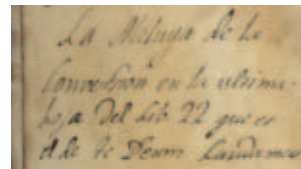 La Aleluya de la
Conversion en la ultima
hoja del Lib. 22 que es
el de te Deum Laudamus